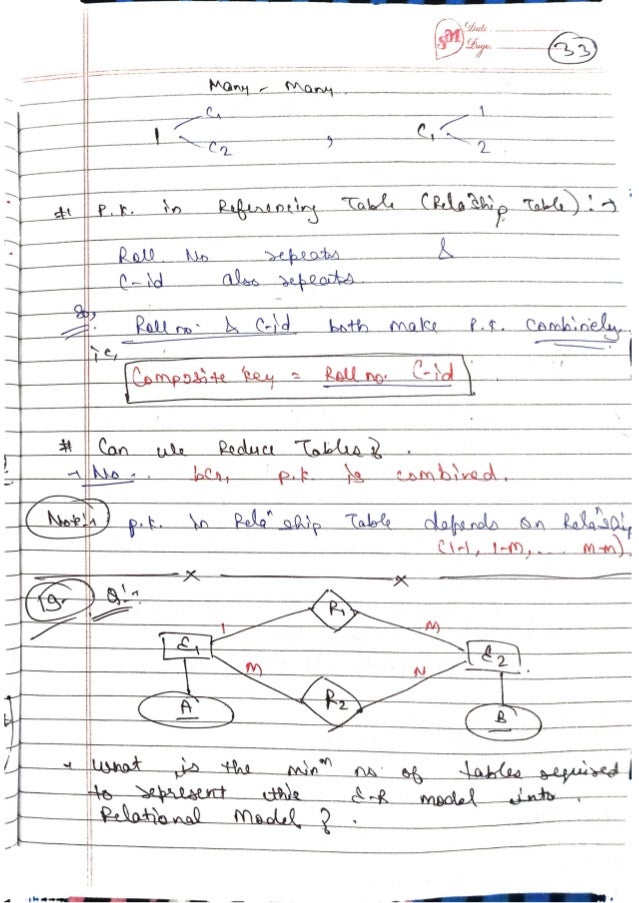 SM Date
Page
33
Many - Many
C1 1
1 , C1
C2 2
# P.K. in Referencing Table (Rela^n ship Table) :→
Roll No repeats &
C-id also repeats
So,
Roll no. & C-id both make P.K. combinely.
ie,
Composite key = Roll no. C-id
# Can we Reduce Tables?
→ No. bcz, p.k. is combined.
Note:→ p.k. in Rela^n ship Table depends on Rela^n ship
(1-1, 1-M, .... M-M).
19. Q:-
R1
1 M
E1 E2
M N
A R2 B
→ What is the min^m no. of tables required
to represent this E-R model into
Relational Model ?